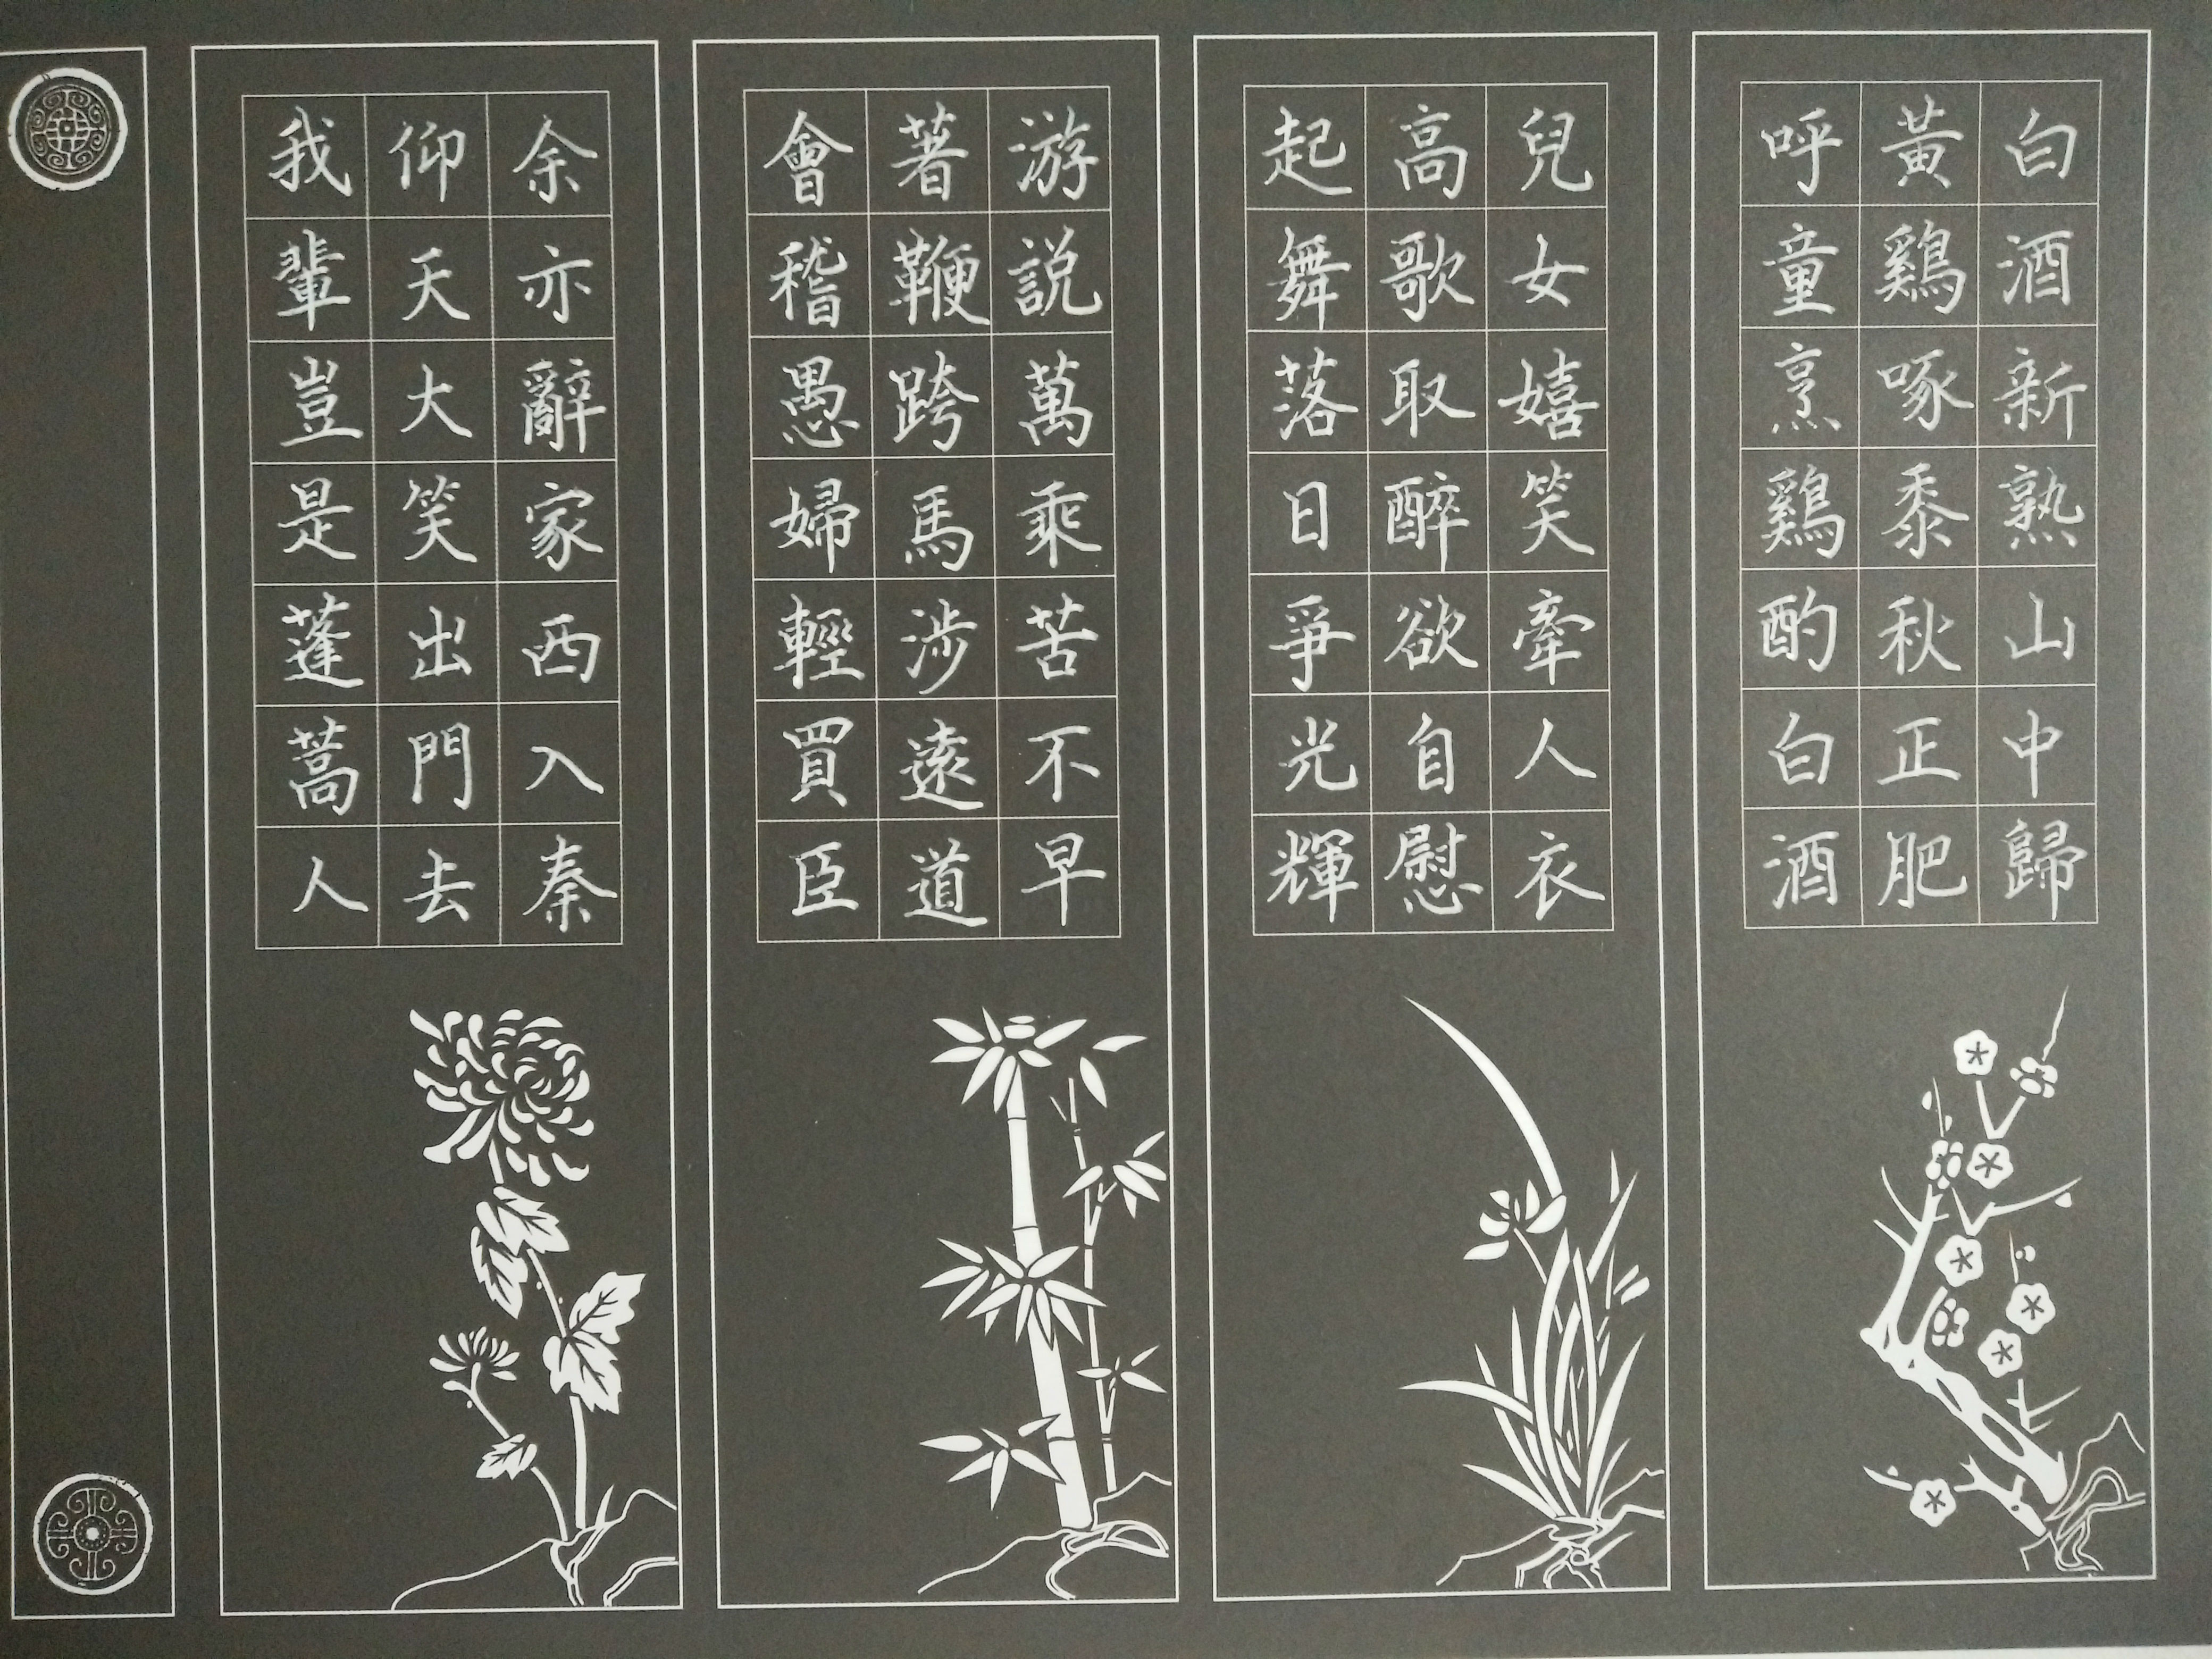 白酒新熟山中歸
黃鷄啄黍秋正肥
呼童烹鷄酌白酒
兒女嬉笑牽人衣
高歌取醉欲自慰
起舞落日爭光輝
游説萬乘苦不早
著鞭跨馬涉遠道
會稽愚婦輕買臣
余亦辭家西入秦
仰天大笑出門去
我輩豈是蓬蒿人